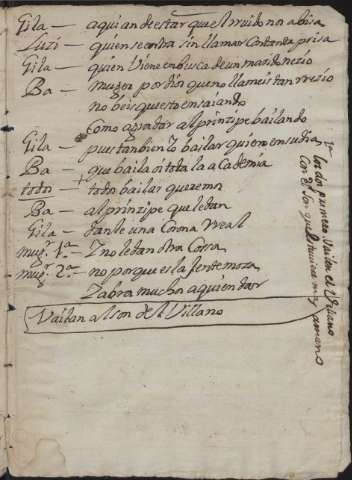 Gila — aqui an de estar que el rruido no abisa
Luzi — quien se entra sin llamar con tanta prisa
Gila — quien biene en busca de un marido nezio
Ba — muger por dios que no llameis tan rrezio
no beis que estoi ensaiando
como agradar al prinzipe bailando
Gila — pues tanbien io bailar quiero en su dia
Ba — que baila oi toda la academia
todos — todos bailar queremos
Ba — al prinzipe que le dan
Gila — danle una Corona rreal
mugr. 1ª — I no le dan otra Cossa
mugr. 2ª — no porque es la fee hermosa
I abra mucho aqui en dar
Vailan al son del Villano
los dos primeros vailan el Villano
con los que
mano